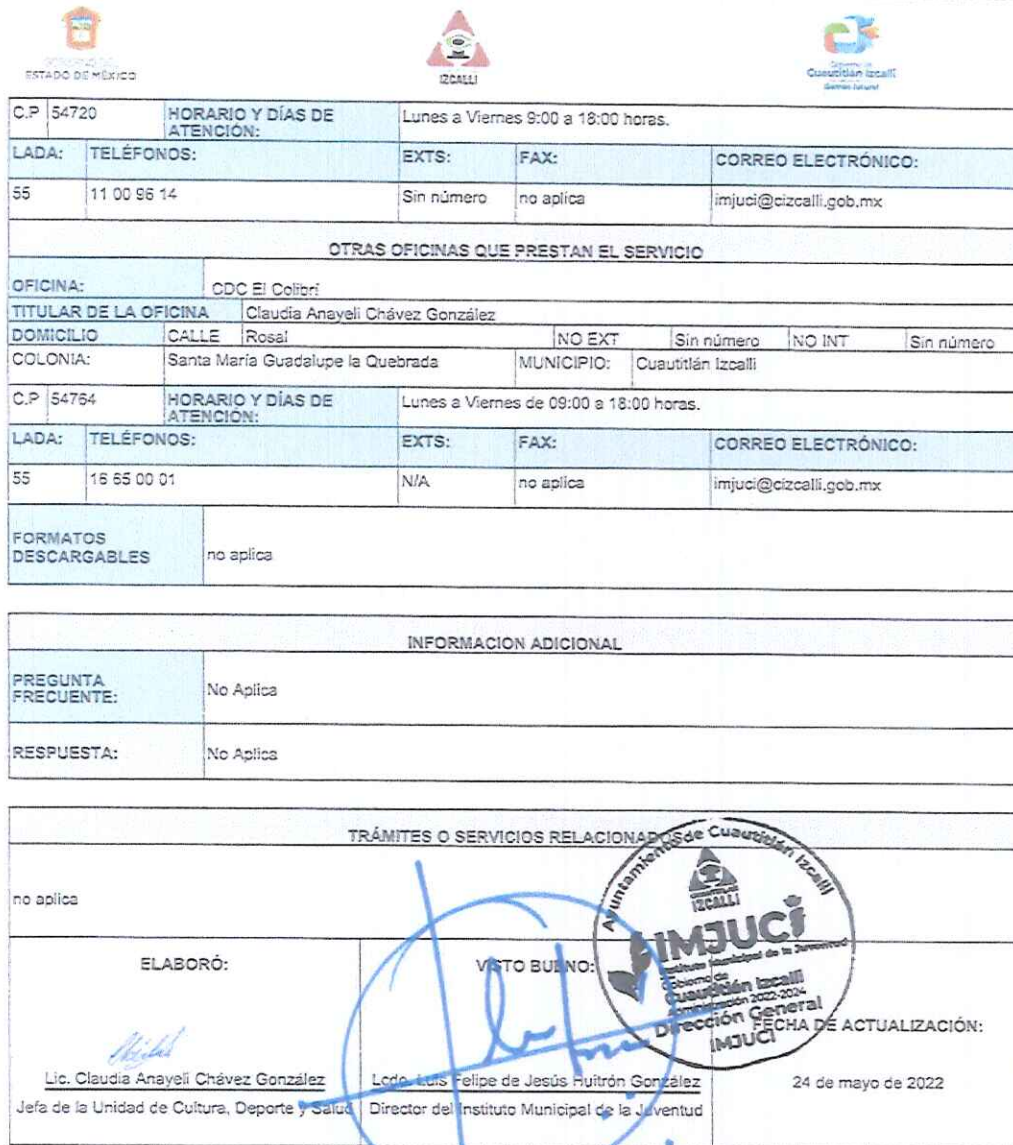 GOBIERNO DEL
ESTADO DE MÉXICO
IZCALLI
Gobierno de
Cuautitlán Izcalli
C.P 54720 HORARIO Y DÍAS DE ATENCIÓN: Lunes a Viernes 9:00 a 18:00 horas.
LADA: TELÉFONOS: EXTS: FAX: CORREO ELECTRÓNICO:
55 11 00 96 14 Sin número no aplica imjuci@cizcalli.gob.mx
OTRAS OFICINAS QUE PRESTAN EL SERVICIO
OFICINA: CDC El Colibrí
TITULAR DE LA OFICINA Claudia Anayeli Chávez González
DOMICILIO CALLE Rosal NO EXT Sin número NO INT Sin número
COLONIA: Santa María Guadalupe la Quebrada MUNICIPIO: Cuautitlán Izcalli
C.P 54764 HORARIO Y DÍAS DE ATENCIÓN: Lunes a Viernes de 09:00 a 18:00 horas.
LADA: TELÉFONOS: EXTS: FAX: CORREO ELECTRÓNICO:
55 16 65 00 01 N/A no aplica imjuci@cizcalli.gob.mx
FORMATOS DESCARGABLES no aplica
INFORMACION ADICIONAL
PREGUNTA FRECUENTE: No Aplica
RESPUESTA: No Aplica
TRÁMITES O SERVICIOS RELACIONADOS
no aplica
Ayuntamiento de Cuautitlán Izcalli
IZCALLI
IMJUCI
Instituto Municipal de la Juventud
Gobierno de
Cuautitlán Izcalli
Administración 2022-2024
Dirección General
IMJUCI
ELABORÓ: VISTO BUENO: FECHA DE ACTUALIZACIÓN:
Lic. Claudia Anayeli Chávez González Lcdo. Luis Felipe de Jesús Huitrón González 24 de mayo de 2022
Jefa de la Unidad de Cultura, Deporte y Salud Director del Instituto Municipal de la Juventud